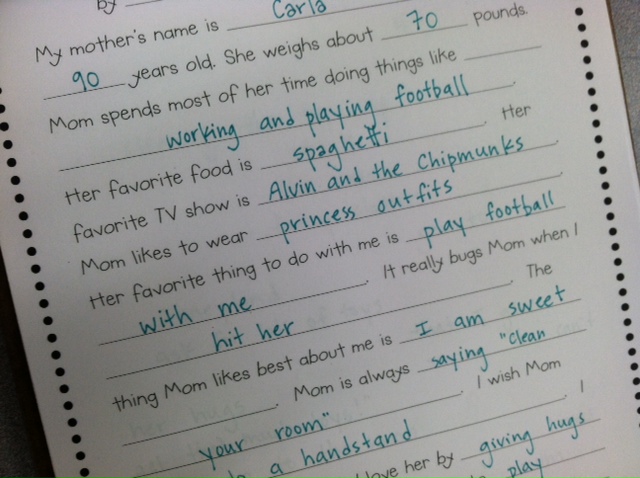 by
My mother's name is Carla
90 years old. She weighs about 70 pounds.
Mom spends most of her time doing things like
working and playing football.
Her favorite food is spaghetti. Her
favorite TV show is Alvin and the Chipmunks.
Mom likes to wear princess outfits.
Her favorite thing to do with me is play football
with me. It really bugs Mom when I
hit her. The
thing Mom likes best about me is I am sweet
. Mom is always saying "clean
your room". I wish Mom
a handstand. I
love her by giving hugs
play